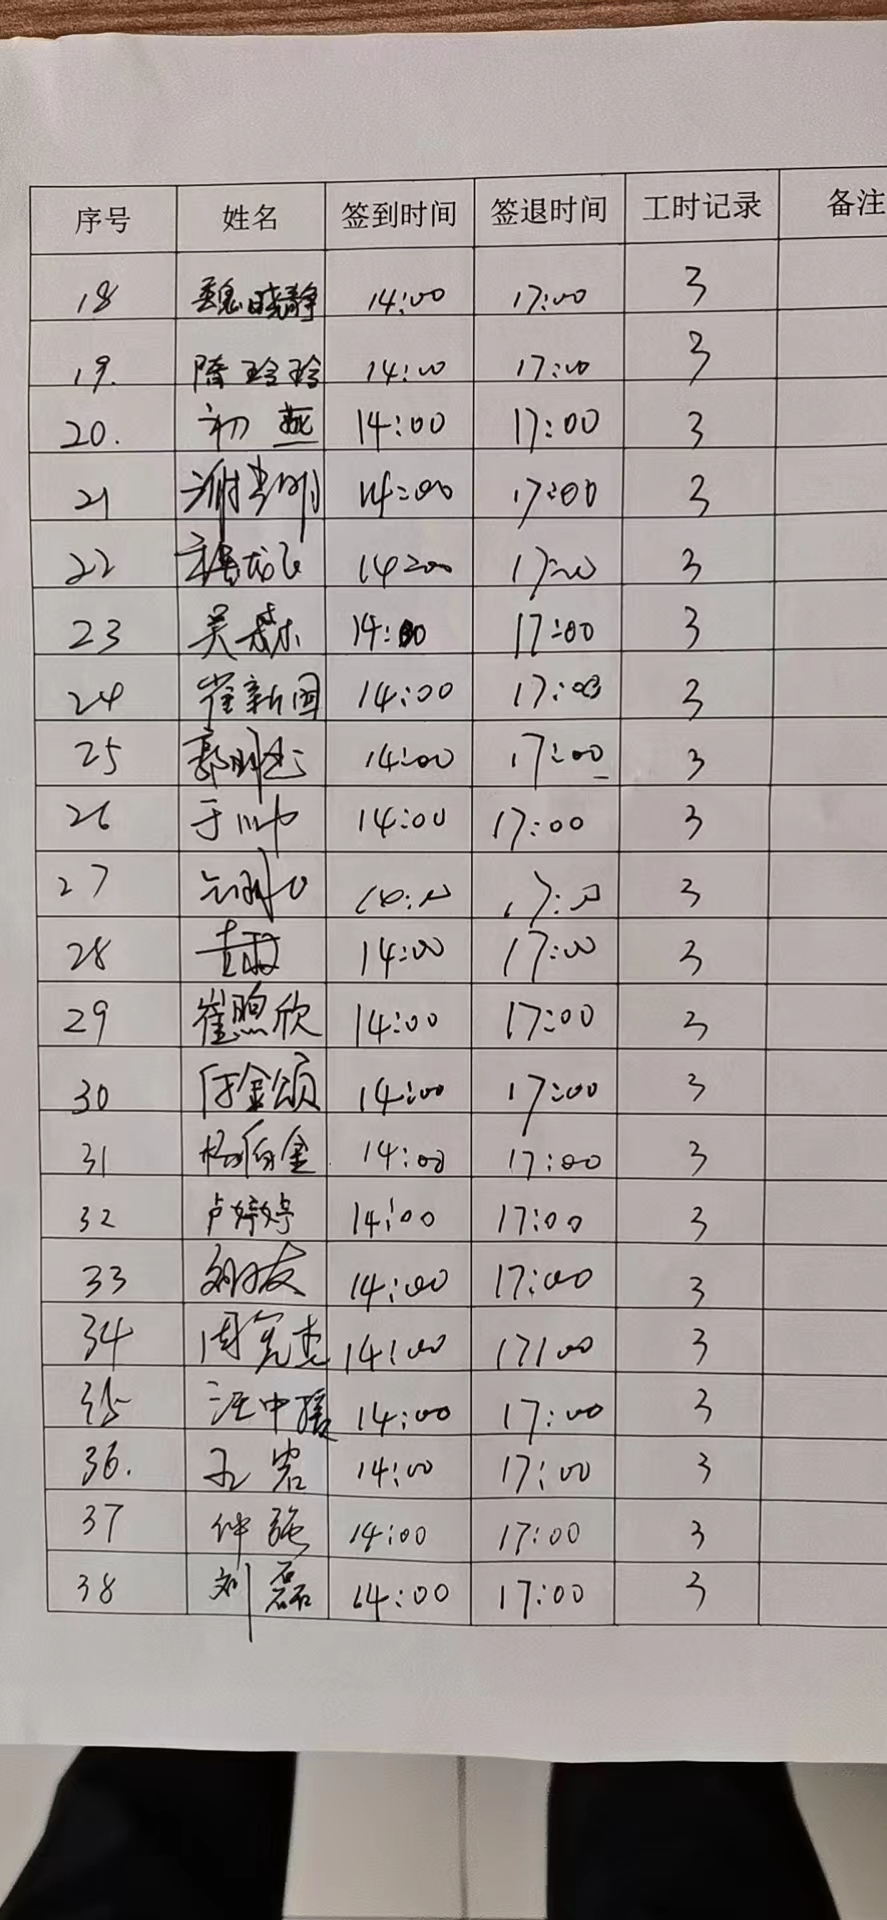 序号 姓名 签到时间 签退时间 工时记录 备注
18 魏晓静 14:00 17:00 3
19. 隋玲玲 14:00 17:00 3
20. 初燕 14:00 17:00 3
21 14:00 17:00 3
22 14:00 17:00 3
23 吴森 14:00 17:00 3
24 崔新国 14:00 17:00 3
25 郭明志 14:00 17:00 3
26 于帅 14:00 17:00 3
27 3
28 14:00 17:00 3
29 崔煦欣 14:00 17:00 3
30 付金颂 14:00 17:00 3
31 14:00 17:00 3
32 卢婷婷 14:00 17:00 3
33 14:00 17:00 3
34 周宪杰 14:00 17:00 3
35 汪中媛 14:00 17:00 3
36. 孔岩 14:00 17:00 3
37 仲强 14:00 17:00 3
38 刘磊 14:00 17:00 3